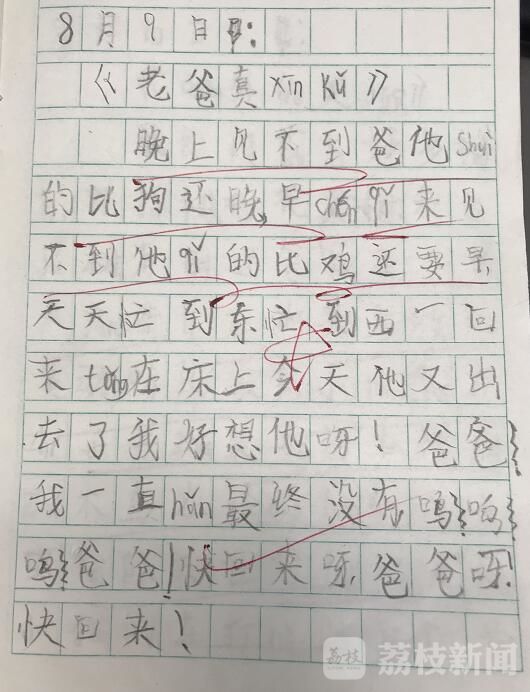 8月9日
《老爸真xīn kǔ》
晚上见不到爸他shuì
的比狗还晚,早chén qǐ来见
不到他qǐ的比鸡还要早
天天忙到东忙到西一回
来tǎng在床上今天他又出
去了我好想他呀!爸爸
我一直hǎn最终没有呜呜
呜爸爸!快回来呀爸爸呀!
快回来!
荔枝 荔枝新闻